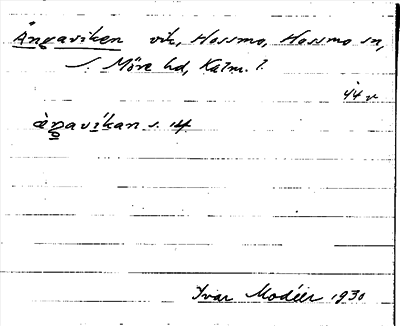 Ängaviken vik, Hossmo, Hossmo sn,
S. Möre hd, Kalm. l.
44 v
àŋavíkan s. 14
Ivar Modéer 1930